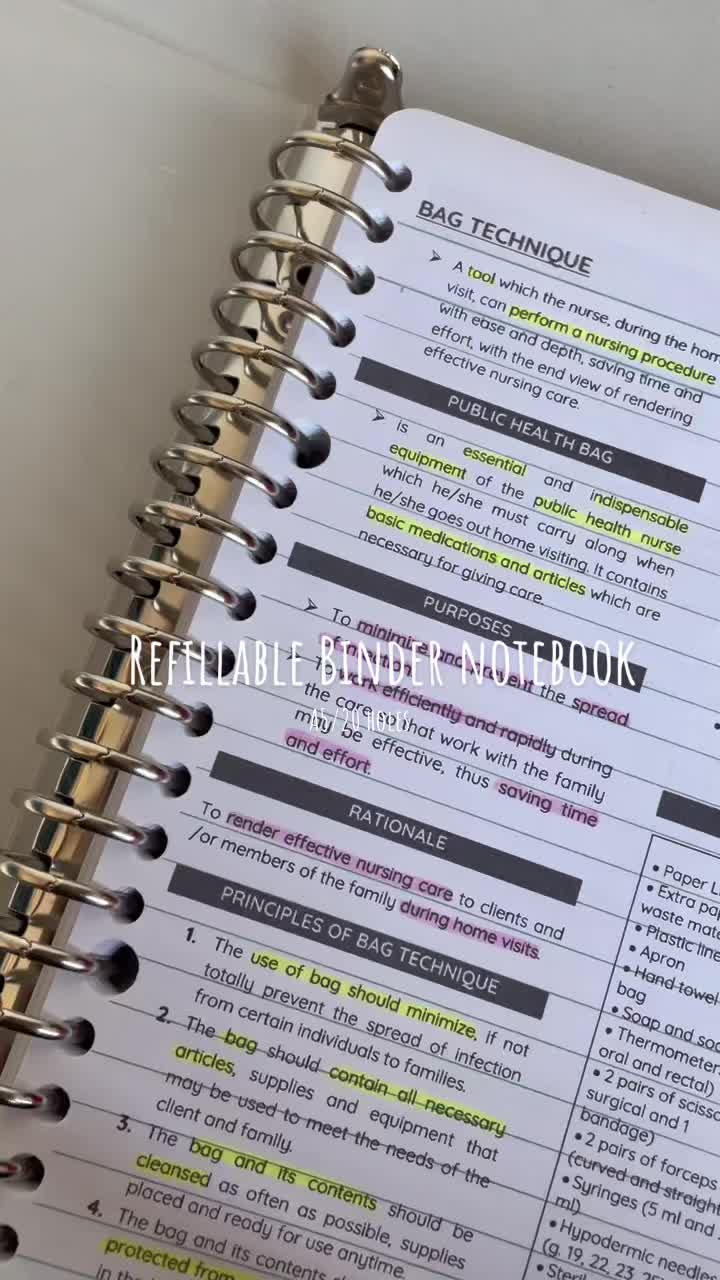 BAG TECHNIQUE
➤ A tool which the nurse, during the hom
visit, can perform a nursing procedure
with ease and depth, saving time and
effort, with the end view of rendering
effective nursing care.
PUBLIC HEALTH BAG
➤ is an essential and indispensable
equipment of the public health nurse
which he/she must carry along when
he/she goes out home visiting. It contains
basic medications and articles which are
necessary for giving care.
PURPOSES
➤ To minimize and prevent the spread
To work efficiently and rapidly during
the care that work with the family
may be effective, thus saving time
and effort.
REFILLABLE BINDER NOTEBOOK
A5/20 HOLES
RATIONALE
To render effective nursing care to clients and
/or members of the family during home visits.
PRINCIPLES OF BAG TECHNIQUE
1. The use of bag should minimize, if not
totally prevent the spread of infection
from certain individuals to families.
2. The bag should contain all necessary
articles, supplies and equipment that
may be used to meet the needs of the
client and family.
3. The bag and its contents should be
cleansed as often as possible, supplies
placed and ready for use anytime.
4. The bag and its contents
protected from
in the
• Paper L
• Extra pa
waste mate
• Plastic line
• Apron
• Hand towel
bag
• Soap and soa
• Thermometer
oral and rectal)
• 2 pairs of scisso
surgical and 1
bandage)
• 2 pairs of forceps
(curved and straight
• Syringes (5 ml and
ml)
• Hypodermic needle
(g. 19, 22, 23,
• Steril